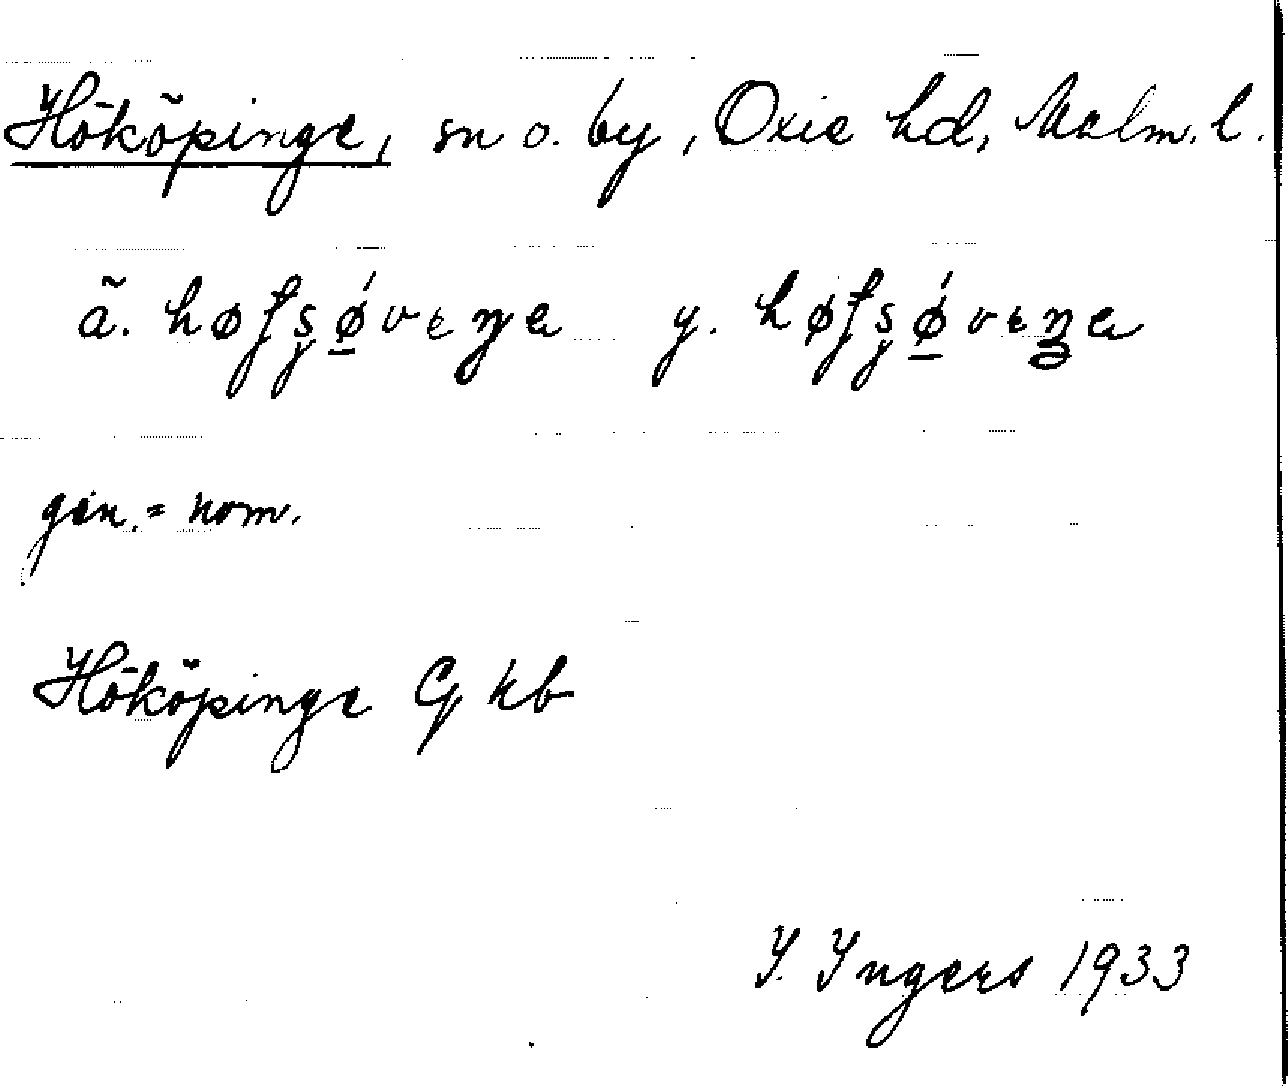 Hököpinge, sn o. by, Oxie hd, Malm. l.
ä. y.
gen. = nom.
Hököpinge G kb
I. Ingers 1933